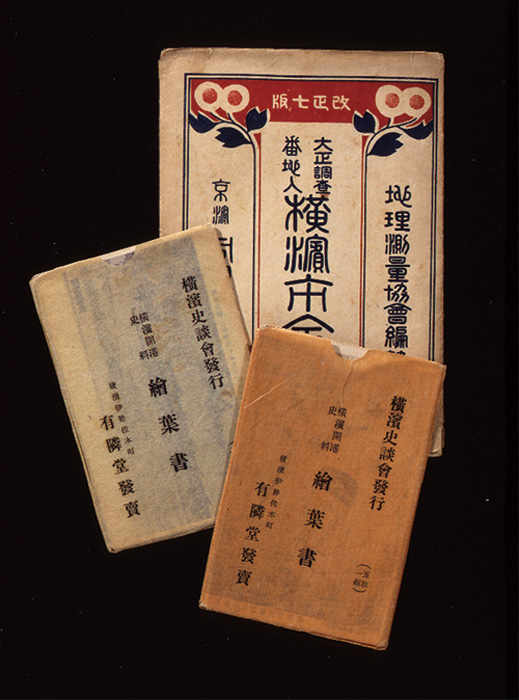 改正七版
地理測量協會編
大正調査
番地入
橫濱市全
京濱
橫濱史談會發行
橫濱開港
史料
繪葉書
橫濱伊勢佐木町
有隣堂發賣
橫濱史談會發行
橫濱開港
史料
繪葉書
(五枚
一組)
橫濱伊勢佐木町
有隣堂發賣